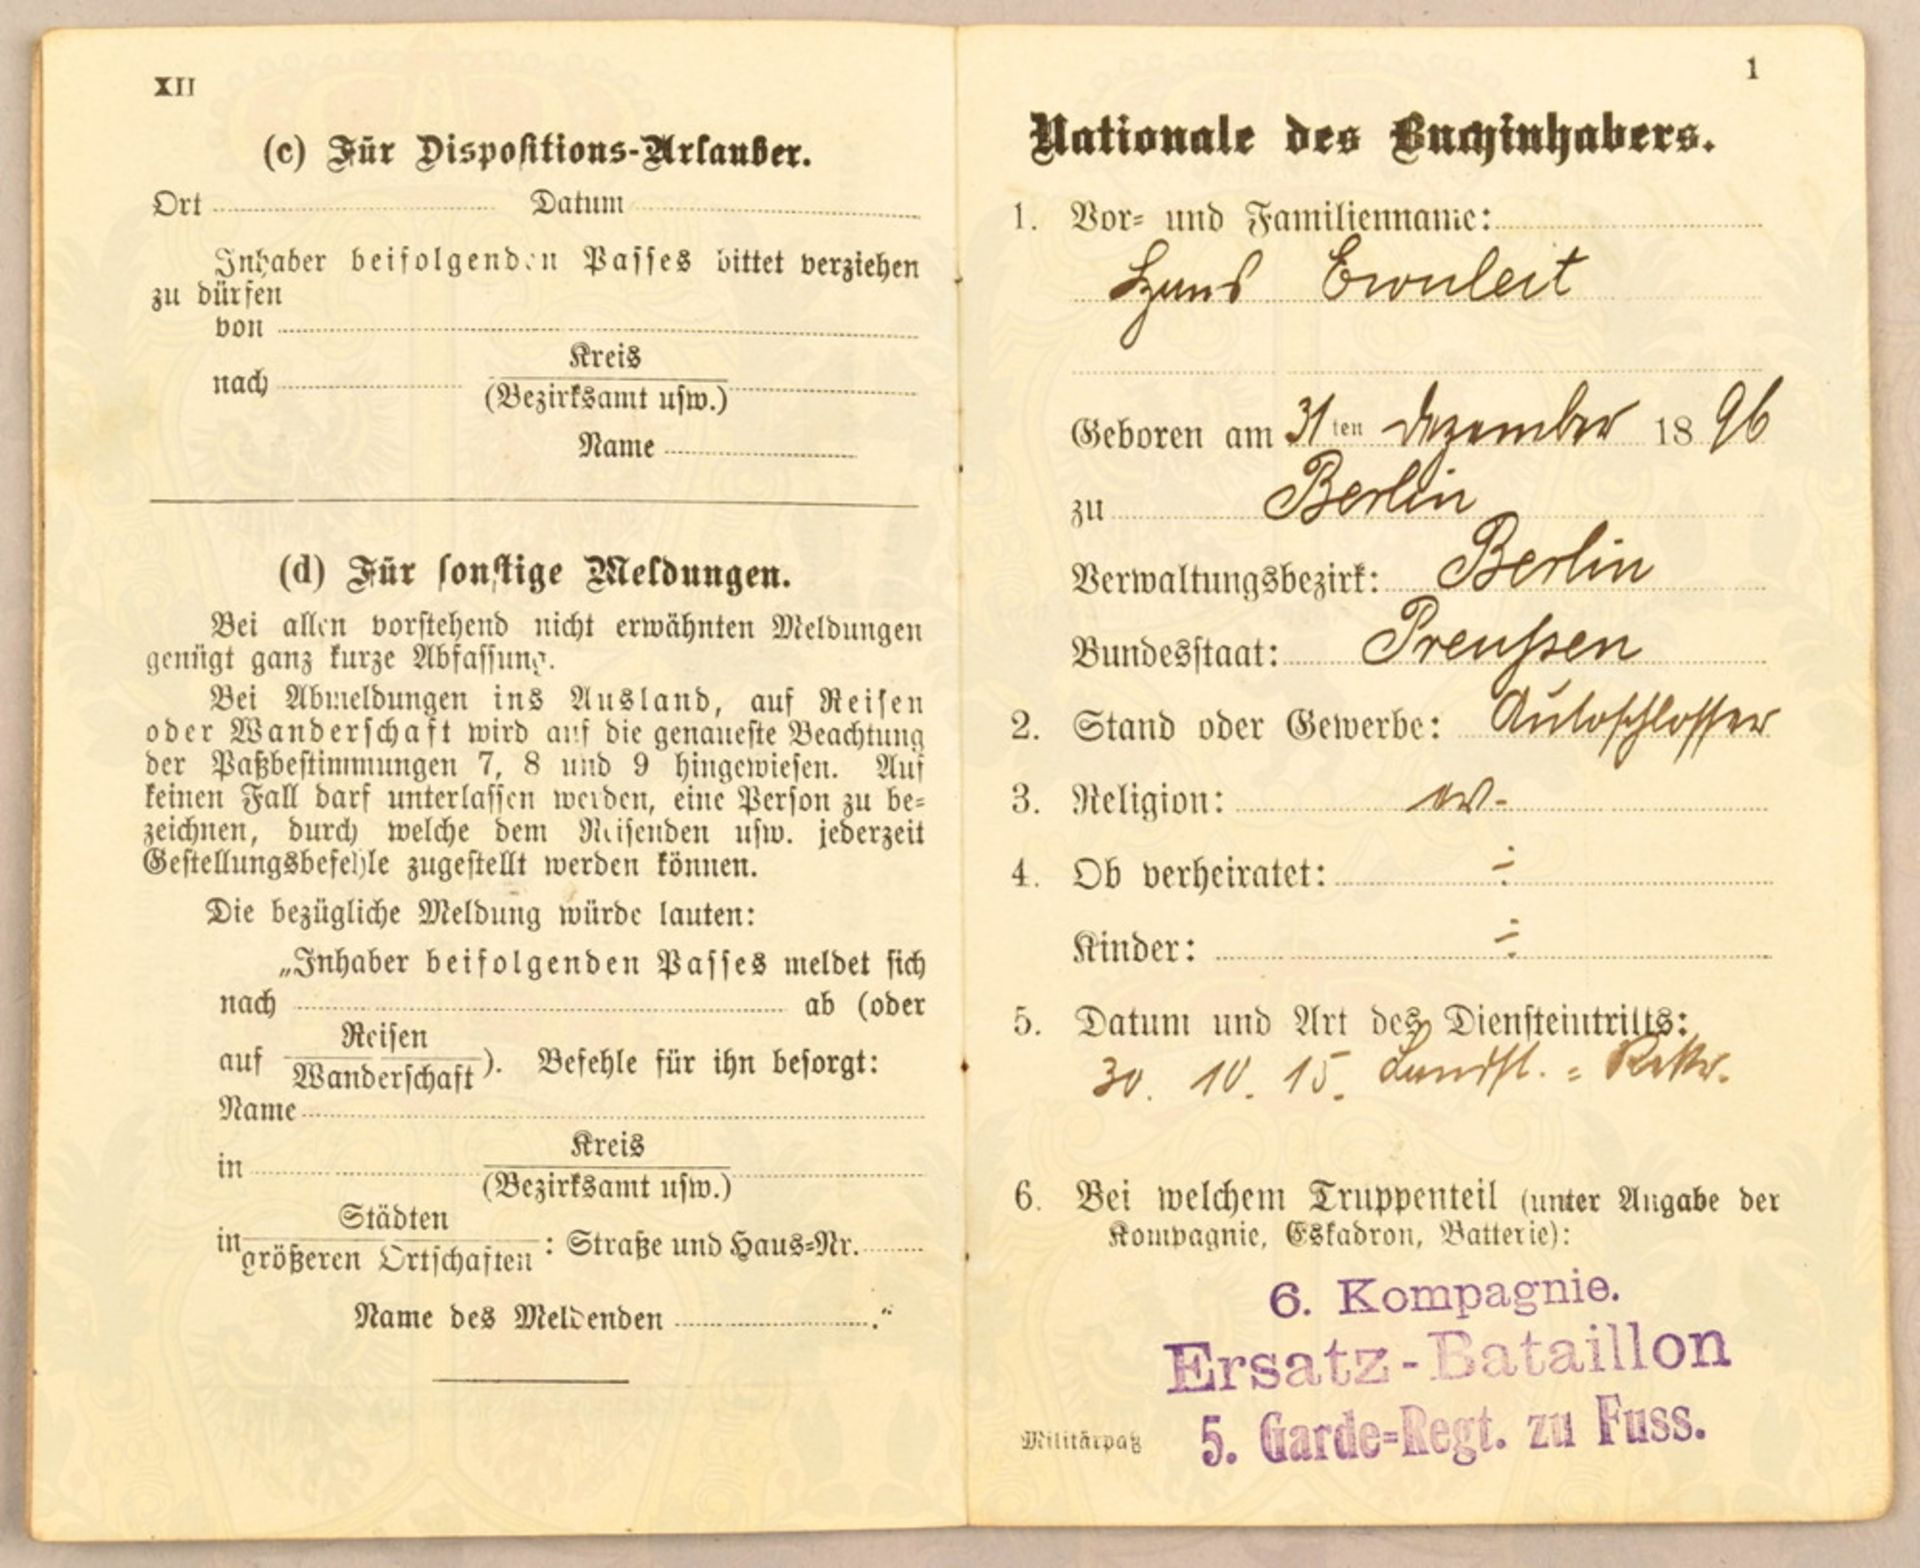 XII
(c) Für Dispositions-Urlauber.
Ort Datum
Inhaber beifolgenden Passes bittet verziehen
zu dürfen
von
nach Kreis
(Bezirksamt usw.)
Name
(d) Für sonstige Meldungen.
Bei allen vorstehend nicht erwähnten Meldungen
genügt ganz kurze Abfassung.
Bei Abmeldungen ins Ausland, auf Reisen
oder Wanderschaft wird auf die genaueste Beachtung
der Paßbestimmungen 7, 8 und 9 hingewiesen. Auf
keinen Fall darf unterlassen werden, eine Person zu be-
zeichnen, durch welche dem Reisenden usw. jederzeit
Gestellungsbefehle zugestellt werden können.
Die bezügliche Meldung würde lauten:
„Inhaber beifolgenden Passes meldet sich
nach ab (oder
auf Reisen
Wanderschaft). Befehle für ihn besorgt:
Name
in Kreis
(Bezirksamt usw.)
in Städten
größeren Ortschaften : Straße und Haus-Nr.
Name des Meldenden .“
1
Nationale des Buchinhabers.
1. Vor- und Familienname:
Hans Ewuleit
Geboren am 31ten Dezember 1896
zu Berlin
Verwaltungsbezirk: Berlin
Bundesstaat: Preußen
2. Stand oder Gewerbe: Autoschlosser
3. Religion: ev.
4. Ob verheiratet: ÷
Kinder: ÷
5. Datum und Art des Diensteintritts:
30. 10. 15. Landst. = Rekr.
6. Bei welchem Truppenteil (unter Angabe der
Kompagnie, Eskadron, Batterie):
6. Kompagnie.
Ersatz-Bataillon
5. Garde-Regt. zu Fuss.
Militärpaß